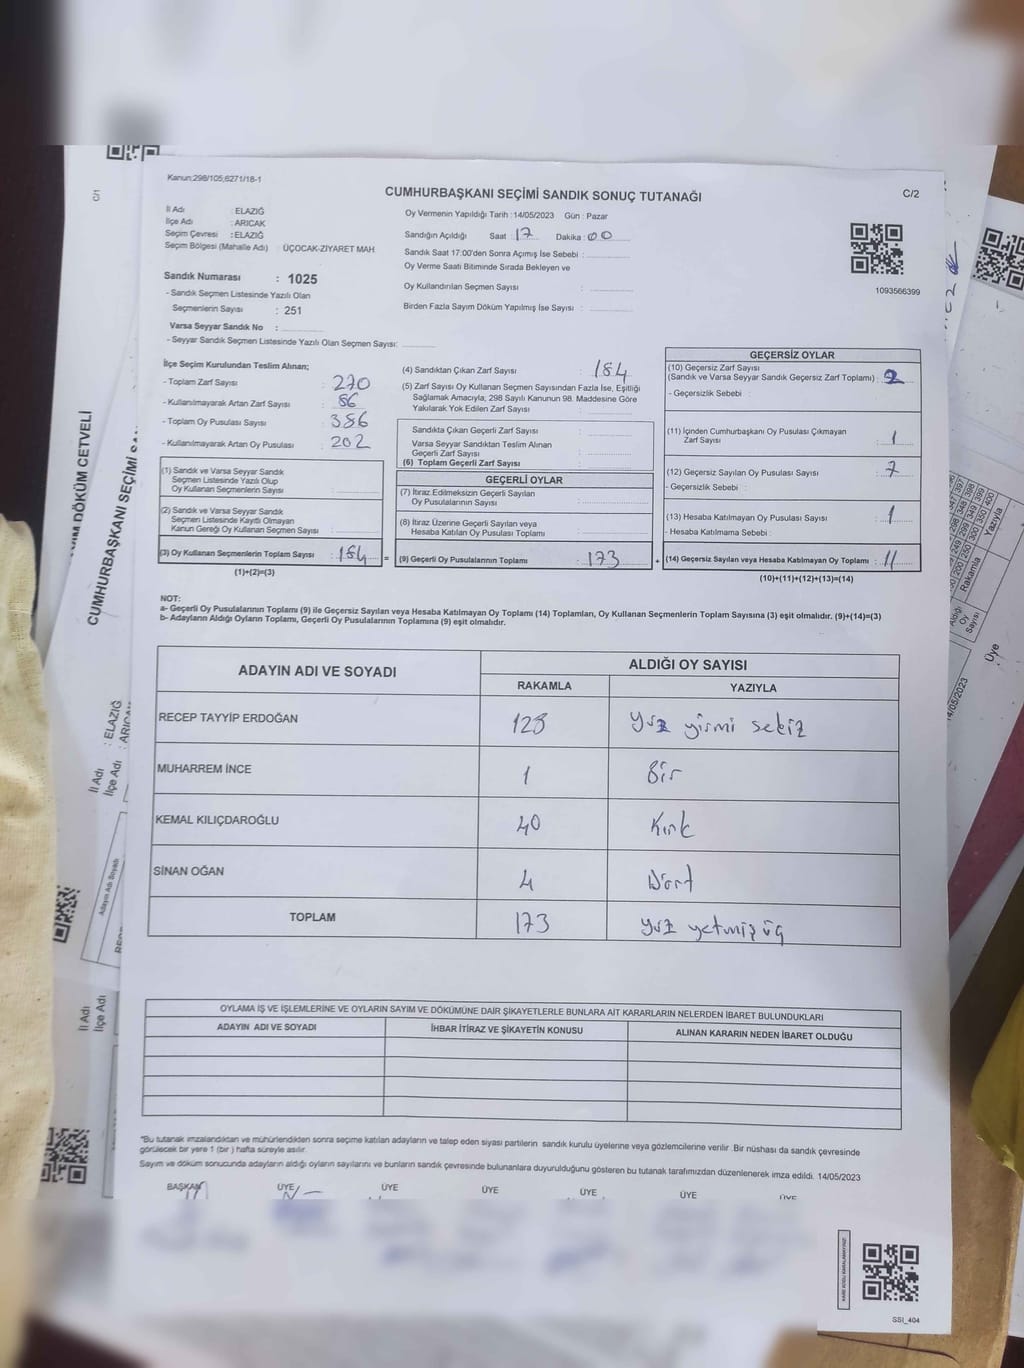 Kanun:298/105,6271/18-1
CUMHURBAŞKANI SEÇİMİ SANDIK SONUÇ TUTANAĞI
C/2
İl Adı : ELAZIĞ
İlçe Adı : ARICAK
Seçim Çevresi : ELAZIĞ
Seçim Bölgesi (Mahalle Adı) : ÜÇOCAK-ZİYARET MAH.
Sandık Numarası : 1025
- Sandık Seçmen Listesinde Yazılı Olan
Seçmenlerin Sayısı : 251
Varsa Seyyar Sandık No :
- Seyyar Sandık Seçmen Listesinde Yazılı Olan Seçmen Sayısı:
Oy Vermenin Yapıldığı Tarih :14/05/2023 Gün : Pazar
Sandığın Açıldığı Saat : 17 Dakika : 00
Sandık Saat 17:00'den Sonra Açımış İse Sebebi :
Oy Verme Saati Bitiminde Sırada Bekleyen ve
Oy Kullandırılan Seçmen Sayısı :
Birden Fazla Sayım Döküm Yapılmış İse Sayısı :
1093566399
İlçe Seçim Kurulundan Teslim Alınan;
- Toplam Zarf Sayısı : 270
- Kullanılmayarak Artan Zarf Sayısı : 86
- Toplam Oy Pusulası Sayısı : 386
- Kullanılmayarak Artan Oy Pusulası : 202
(1) Sandık ve Varsa Seyyar Sandık
Seçmen Listesinde Yazılı Olup
Oy Kullanan Seçmenlerin Sayısı :
(2) Sandık ve Varsa Seyyar Sandık
Seçmen Listesinde Kayıtlı Olmayan
Kanun Gereği Oy Kullanan Seçmen Sayısı :
(3) Oy Kullanan Seçmenlerin Toplam Sayısı : 184 =
(1)+(2)=(3)
(4) Sandıktan Çıkan Zarf Sayısı : 184
(5) Zarf Sayısı Oy Kullanan Seçmen Sayısından Fazla İse, Eşitliği
Sağlamak Amacıyla, 298 Sayılı Kanunun 98. Maddesine Göre
Yakılarak Yok Edilen Zarf Sayısı :
Sandıkta Çıkan Geçerli Zarf Sayısı :
Varsa Seyyar Sandıktan Teslim Alınan
Geçerli Zarf Sayısı :
(6) Toplam Geçerli Zarf Sayısı :
GEÇERLİ OYLAR
(7) İtiraz Edilmeksizin Geçerli Sayılan
Oy Pusulalarının Sayısı :
(8) İtiraz Üzerine Geçerli Sayılan veya
Hesaba Katılan Oy Pusulaları Toplamı :
(9) Geçerli Oy Pusulalarının Toplamı : 173 +
GEÇERSİZ OYLAR
(10) Geçersiz Zarf Sayısı
(Sandık ve Varsa Seyyar Sandık Geçersiz Zarf Toplamı) : 2
- Geçersizlik Sebebi :
(11) İçinden Cumhurbaşkanı Oy Pusulası Çıkmayan
Zarf Sayısı : 1
(12) Geçersiz Sayılan Oy Pusulası Sayısı : 7
- Geçersizlik Sebebi :
(13) Hesaba Katılmayan Oy Pusulası Sayısı : 1
- Hesaba Katılmama Sebebi :
(14) Geçersiz Sayılan veya Hesaba Katılmayan Oy Toplamı : 11
(10)+(11)+(12)+(13)=(14)
NOT:
a- Geçerli Oy Pusulalarının Toplamı (9) ile Geçersiz Sayılan veya Hesaba Katılmayan Oy Toplamı (14) Toplamları, Oy Kullanan Seçmenlerin Toplam Sayısına (3) eşit olmalıdır. (9)+(14)=(3)
b- Adayların Aldığı Oyların Toplamı, Geçerli Oy Pusulalarının Toplamına (9) eşit olmalıdır.
ADAYIN ADI VE SOYADI
ALDIĞI OY SAYISI
RAKAMLA YAZIYLA
RECEP TAYYİP ERDOĞAN 128 yüz yirmi sekiz
MUHARREM İNCE 1 Bir
KEMAL KILIÇDAROĞLU 40 Kırk
SİNAN OĞAN 4 Dört
TOPLAM 173 yüz yetmiş üç
OYLAMA İŞ VE İŞLEMLERİNE VE OYLARIN SAYIM VE DÖKÜMÜNE DAİR ŞİKAYETLERLE BUNLARA AİT KARARLARIN NELERDEN İBARET BULUNDUKLARI
ADAYIN ADI VE SOYADI İHBAR İTİRAZ VE ŞİKAYETİN KONUSU ALINAN KARARIN NEDEN İBARET OLDUĞU
*Bu tutanak imzalandıktan ve mühürlendikten sonra seçime katılan adayların ve talep eden siyasi partilerin sandık kurulu üyelerine veya gözlemcilerine verilir. Bir nüshası da sandık çevresinde
görülecek bir yere 1 (bir ) hafta süreyle asılır.
Sayım ve döküm sonucunda adayların aldığı oyların sayılarını ve bunların sandık çevresinde bulunanlara duyurulduğunu gösteren bu tutanak tarafımızdan düzenlenerek imza edildi. 14/05/2023
BAŞKAN ÜYE ÜYE ÜYE ÜYE ÜYE ÜYE
SSI_404
C/1
DÖKÜM CETVELİ
CUMHURBAŞKANI SEÇİMİ
İl Adı : ELAZIĞ
İlçe Adı
Adayın Adı Soyadı
İl Adı
İlçe Adı
Yazıyla
Rakamla
Aldığı
Oy
Sayısı
Üye
14/05/2023